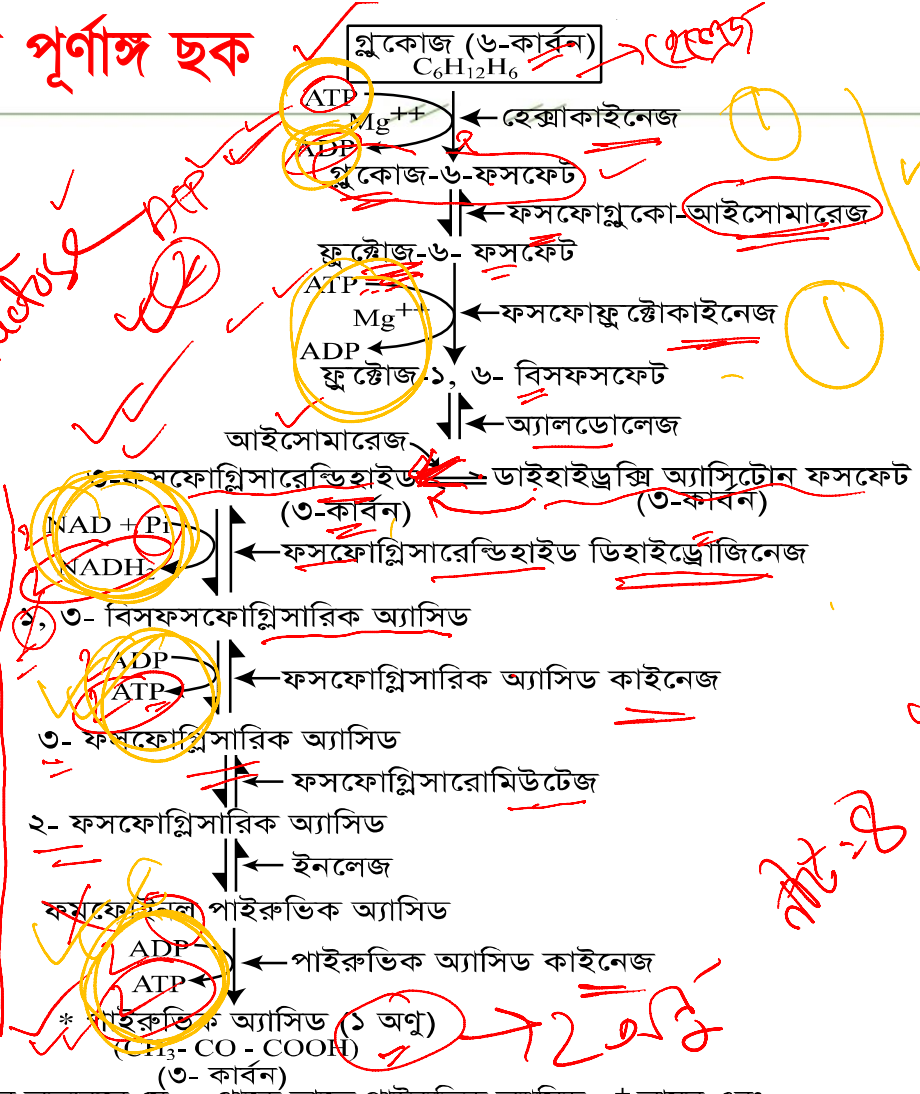 পূর্ণাঙ্গ ছক
গ্লুকোজ (৬-কার্বন)
C6H12H6
ATP
Mg++
হেক্সাকাইনেজ
ADP
গ্লুকোজ-৬-ফসফেট
ATP
ফসফোগ্লুকো-আইসোমারেজ
ফ্রুক্টোজ-৬- ফসফেট
ATP
Mg++
ফসফোফ্রুক্টোকাইনেজ
ADP
ফ্রুক্টোজ-১, ৬- বিসফসফেট
অ্যালডোলেজ
আইসোমারেজ
৩-ফসফোগ্লিসারেল্ডিহাইড ডাইহাইড্রক্সি অ্যাসিটোন ফসফেট
(৩-কার্বন) (৩-কার্বন)
NAD + Pi
ফসফোগ্লিসারেল্ডিহাইড ডিহাইড্রোজিনেজ
NADH2
১, ৩- বিসফসফোগ্লিসারিক অ্যাসিড
ADP
ফসফোগ্লিসারিক অ্যাসিড কাইনেজ
ATP
৩- ফসফোগ্লিসারিক অ্যাসিড
ফসফোগ্লিসারোমিউটেজ
২- ফসফোগ্লিসারিক অ্যাসিড
ইনলেজ
পাইরুভিক অ্যাসিড
ADP
পাইরুভিক অ্যাসিড কাইনেজ
ATP
* পাইরুভিক অ্যাসিড (১ অণু)
(CH3- CO - COOH)
(৩- কার্বন)